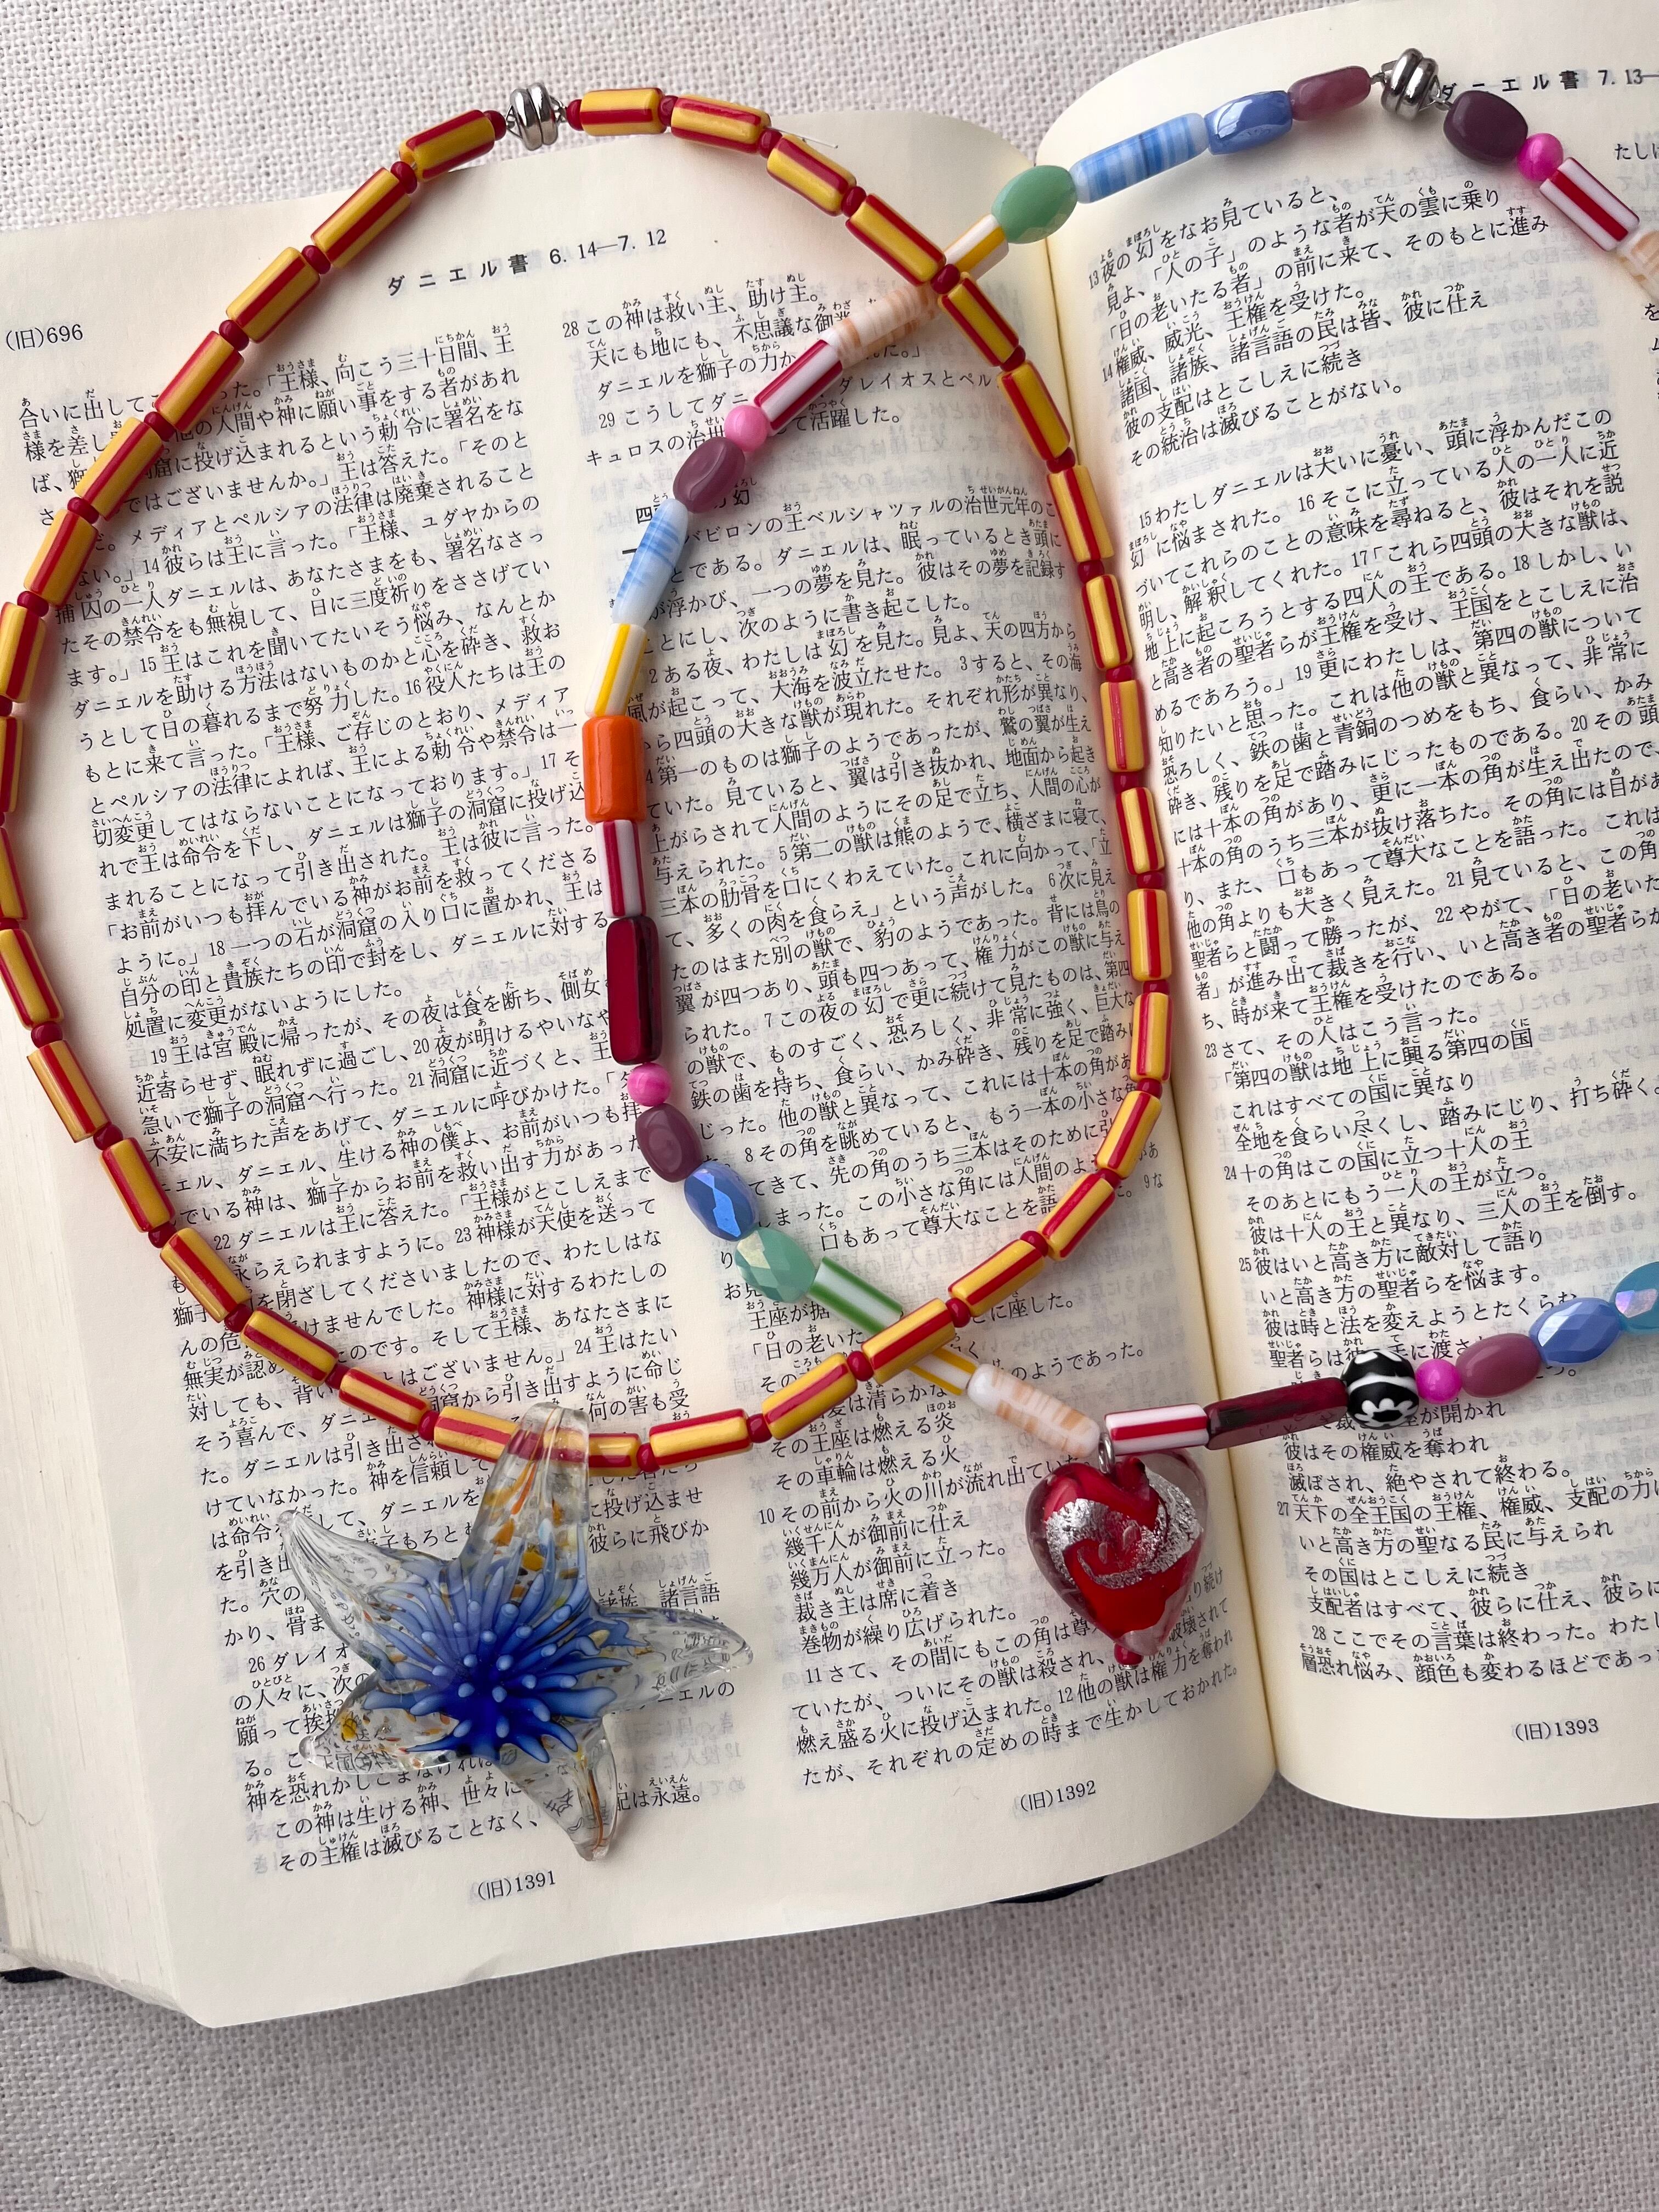 ダニエル書 6.14―7.12
(旧)696
合いに出して
た。「王様、向こう三十日間、王
様を差し
他の人間や神に願い事をする者があれ
ば、
洞窟に投げ込まれるという勅令に署名をな
ではございませんか。」王は答えた。「そのと
だ。メディアとペルシアの法律は廃棄されること
ない。」14 彼らは王に言った。「王様、ユダヤからの
捕囚の一人ダニエルは、あなたさまをも、署名なさっ
たその禁令をも無視して、日に三度祈りをささげてい
ます。」15 王はこれを聞いてたいそう悩み、なんとか
ダニエルを助ける方法はないものかと心を砕き、救お
うとして日の暮れるまで努力した。16 役人たちは王の
もとに来て言った。「王様、ご存じのとおり、メディア
とペルシアの法律によれば、王による勅令や禁令は一
切変更してはならないことになっております。」17 そ
れで王は命令を下し、ダニエルは獅子の洞窟に投げ込
まれることになって引き出された。王は彼に言った。
「お前がいつも拝んでいる神がお前を救ってくださる
ように。」18 一つの石が洞窟の入り口に置かれ、王は
自分の印と貴族たちの印で封をし、ダニエルに対する
処置に変更がないようにした。
19 王は宮殿に帰ったが、その夜は食を断ち、側女
近寄らせず、眠れずに過ごし、20 夜が明けるやいなや
急いで獅子の洞窟へ行った。21 洞窟に近づくと、王
不安に満ちた声をあげて、ダニエルに呼びかけた。「
ニエル、ダニエル、生ける神の僕よ、お前がいつも拝
でいる神は、獅子からお前を救い出す力があった
22 ダニエルは王に答えた。「王様がとこしえまで
永らえられますように。23 神様が天使を送って
獅子
を閉ざしてくださいましたので、わたしはな
んの危
けませんでした。神様に対するわたしの
無実が認め
たのです。そして王様、あなたさまに
対しても、背い
とはございません。」24 王はたい
そう喜んで、ダニエ
洞窟から引き出すように命じ
た。ダニエルは引き出さ
何の害も受
けていなかった。神を信頼して
は命令
して、ダニエルを
に投げ込ませ
を引き出
子もろとも
彼らに飛びか
た。穴の
かり、骨ま
26 ダレイオ
諸族、諸言語
の人々に、次の
願って挨拶
ニエルの
神を恐れかしこまなければ
この神は生ける神、世々に
配は永遠。
その主権は滅びることなく、
(旧)1391
28 この神は救い主、助け主。
天にも地にも、不思議な御業
ダニエルを獅子の力か
れた。」
29 こうしてダニ
ダレイオスとペル
キュロスの治世
て活躍した。
四
の幻
バビロンの王ベルシャツァルの治世元年のこ
とである。ダニエルは、眠っているとき頭に
が浮かび、一つの夢を見た。彼はその夢を記録す
ことにし、次のように書き起こした。
2 ある夜、わたしは幻を見た。見よ、天の四方から
風が起こって、大海を波立たせた。3 すると、その海
から四頭の大きな獣が現れた。それぞれ形が異なり、
4 第一のものは獅子のようであったが、鷲の翼が生え
ていた。見ていると、翼は引き抜かれ、地面から起き
上がらされて人間のようにその足で立ち、人間の心が
与えられた。5 第二の獣は熊のようで、横ざまに寝て、
三本の肋骨を口にくわえていた。これに向かって、「立
て、多くの肉を食らえ」という声がした。6 次に見え
たのはまた別の獣で、豹のようであった。背には鳥の
翼が四つあり、頭も四つあって、権力がこの獣に与え
られた。7 この夜の幻で更に続けて見たものは、第四
の獣で、ものすごく、恐ろしく、非常に強く、巨大な
鉄の歯を持ち、食らい、かみ砕き、残りを足で踏みに
じった。他の獣と異なって、これには十本の角があ
8 その角を眺めていると、もう一本の小さな
てきて、先の角のうち三本はそのために引
しまった。この小さな角には人間のよ
があ
口もあって尊大なことを語
。9 な
王座が据
に座した。
「日の老いた
のようであった。
は清らかな
その王座は燃える炎
その車輪は燃える火
10 その前から火の川が流れ出ていた
幾千人が御前に仕え
幾万人が御前に立った。
裁き主は席に着き
巻物が繰り広げられた。
11 さて、その間にもこの角は尊
り続け
ていたが、ついにその獣は殺され、
破壊されて
燃え盛る火に投げ込まれた。12 他の獣は権力を奪われ
たが、それぞれの定めの時まで生かしておかれた。
(旧)1392
ダニエル書 7.13―
13 夜の幻をなお見ていると、
見よ、「人の子」のような者が天の雲に乗り
「日の老いたる者」の前に来て、そのもとに進み
14 権威、威光、王権を受けた。
諸国、諸族、諸言語の民は皆、彼に仕え
彼の支配はとこしえに続き
その統治は滅びることがない。
15 わたしダニエルは大いに憂い、頭に浮かんだこの
幻に悩まされた。16 そこに立っている人の一人に近
づいてこれらのことの意味を尋ねると、彼はそれを説
明し、解釈してくれた。17「これら四頭の大きな獣は、
地上に起ころうとする四人の王である。18 しかし、い
と高き者の聖者らが王権を受け、王国をとこしえに治
めるであろう。」19 更にわたしは、第四の獣について
知りたいと思った。これは他の獣と異なって、非常に
恐ろしく、鉄の歯と青銅のつめをもち、食らい、かみ
砕き、残りを足で踏みにじったものである。20 その頭
には十本の角があり、更に一本の角が生え出たので、
十本の角のうち三本が抜け落ちた。その角には目があ
り、また、口もあって尊大なことを語った。これは
他の角よりも大きく見えた。21 見ていると、この角
聖者らと闘って勝ったが、22 やがて、「日の老いた
者」が進み出て裁きを行い、いと高き者の聖者らが
ち、時が来て王権を受けたのである。
23 さて、その人はこう言った。
「第四の獣は地上に興る第四の国
これはすべての国に異なり
全地を食らい尽くし、踏みにじり、打ち砕く。
24 十の角はこの国に立つ十人の王
そのあとにもう一人の王が立つ。
彼は十人の王と異なり、三人の王を倒す。
25 彼はいと高き方に敵対して語り
いと高き方の聖者らを悩ます。
彼は時と法を変えようとたくらむ
聖者らは彼
に渡さ
が開かれ
彼はその権威を奪われ
滅ぼされ、絶やされて終わる。
27 天下の全王国の王権、権威、支配の力は
いと高き方の聖なる民に与えられ
その国はとこしえに続き
支配者はすべて、彼らに仕え、彼らに
28 ここでその言葉は終わった。わたし
層恐れ悩み、顔色も変わるほどであっ
(旧)1393
たしは